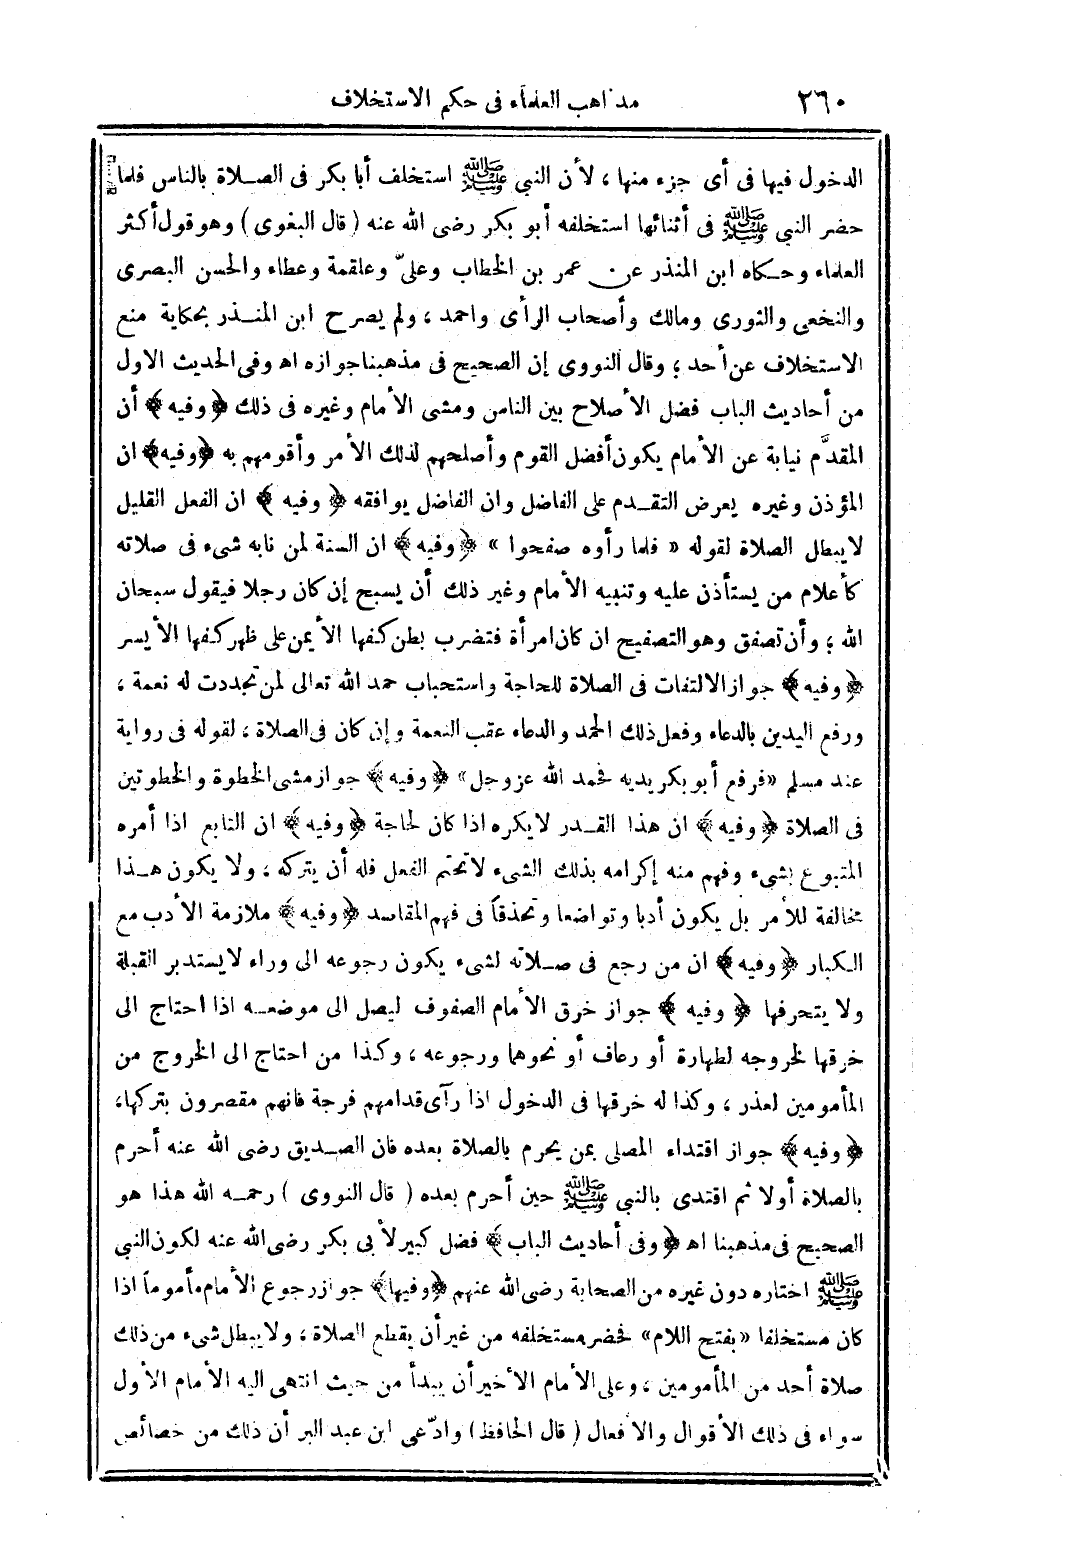 ٢٦٠ مذاهب العلماء فى حكم الاستخلاف
الدخول فيها فى أى جزء منها ، لأن النبي ﷺ استخلف أبا بكر فى الصلاة بالناس فلما
حضر النبى ﷺ فى أثنائها استخلفه أبو بكر رضى الله عنه (قال البغوى) وهو قول أكثر
العلماء وحكاه ابن المنذر عن عمر بن الخطاب وعلىّ وعلقمة وعطاء والحسن البصرى
والنخعى والثورى ومالك وأصحاب الرأى واحمد ، ولم يصرح ابن المنذر بحكاية منع
الاستخلاف عن أحد ؛ وقال النووى إن الصحيح فى مذهبنا جوازه اه وفى الحديث الاول
من أحاديث الباب فضل الأصلاح بين الناس ومشى الأمام وغيره فى ذلك ﴿وفيه﴾ أن
المقدَّم نيابة عن الأمام يكون أفضل القوم وأصلحهم لذلك الأمر وأقومهم به ﴿وفيه﴾ ان
المؤذن وغيره يعرض التقدم على الفاضل وان الفاضل يوافقه ﴿وفيه﴾ ان الفعل القليل
لايبطل الصلاة لقوله « فلما رأوه صفحوا » ﴿وفيه﴾ ان السنة لمن نابه شىء فى صلاته
كأعلام من يستأذن عليه وتنبيه الأمام وغير ذلك أن يسبح إن كان رجلا فيقول سبحان
الله ؛ وأن تصفق وهو التصفيح ان كان امرأة فتضرب بطن كفها الأيمن على ظهر كفها الأيسر
﴿وفيه﴾ جواز الالتفات فى الصلاة للحاجة واستحباب حمد الله تعالى لمن تجددت له نعمة ،
ورفع اليدين بالدعاء وفعل ذلك الحمد والدعاء عقب النعمة وإن كان فى الصلاة ، لقوله فى رواية
عند مسلم «فرفع أبو بكر يديه فحمد الله عز وجل» ﴿وفيه﴾ جواز مشى الخطوة والخطوتين
فى الصلاة ﴿وفيه﴾ ان هذا القدر لايكره اذا كان لحاجة ﴿وفيه﴾ ان التابع اذا أمره
المتبوع بشىء وفهم منه إكرامه بذلك الشىء لاتحتم الفعل فله أن يتركه ، ولا يكون هذا
مخالفة للأمر بل يكون أدبا وتواضعا وتحذقاً فى فهم المقاسد ﴿وفيه﴾ ملازمة الأدب مع
الكبار ﴿وفيه﴾ ان من رجع فى صلاته لشىء يكون رجوعه الى وراء لايستدبر القبلة
ولا يتحرفها ﴿وفيه﴾ جواز خرق الأمام الصفوف ليصل الى موضعه اذا احتاج الى
خرقها لخروجه لطهارة أو رعاف أو نحوهما ورجوعه ، وكذا من احتاج الى الخروج من
المأمومين لعذر ، وكذا له خرقها فى الدخول اذا رآى قدامهم فرجة فانهم مقصرون بتركها،
﴿وفيه﴾ جواز اقتداء المصلى بمن يحرم بالصلاة بعده فان الصديق رضى الله عنه أحرم
بالصلاة أولا ثم اقتدى بالنبي ﷺ حين أحرم بعده (قال النووى) رحمه الله هذا هو
الصحيح فى مذهبنا اه ﴿وفى أحاديث الباب﴾ فضل كبير لأبى بكر رضى الله عنه لكون النبي
ﷺ اختاره دون غيره من الصحابة رضى الله عنهم ﴿وفيها﴾ جواز رجوع الأمام مأموماً اذا
كان مستخلفا «بفتح اللام» فحضر مستخلفه من غير أن يقطع الصلاة ، ولايبطل شىء من ذلك
صلاة أحد من المأمومين ، وعلى الأمام الأخير أن يبدأ من حيث انتهى اليه الأمام الأول
سواء فى ذلك الأقوال والأفعال (قال الحافظ) وادّعى ابن عبد البر أن ذلك من خصائص